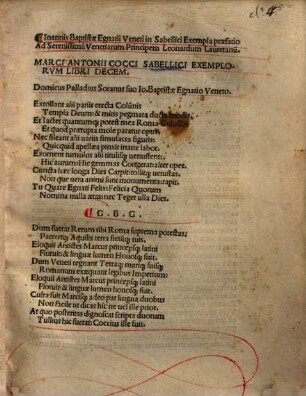 ¶Ioannis Baptistæ Egnatii Veneti in Sabellici Exempla præfatio
Ad Serenissimū Venetiarum Principem Leonardum Lauretanū.
MARCI ANTONII COCCI SABELLICI EXEMPLO-
RVM LIBRI DECEM.
Domicus Palladius Soranus suo Io.Baptistæ Egnatio Veneto.
Extollant alii pariis erecta Colūnis
Templa Deum & miris pegmata
Et iactet quantumq; potest mea Roma
Et quod prærupta mole paratur opus
Nec sileant alii uariis simulacra figuris
Quicquid apellæa
Exornent tumulos alii
Hic aurum: Hic gemmas
Cuncta hæc longa Dies
Non que uera animi sunt monumenta rapit.
Tu Quare Egnati Felix Felicia Quorum
Nomina nulla Teget ulla Dies.
¶ G.B.G.
Dum fuerat Rerum sibi Roma suprema potestas:
Pareretq; Aquilis terra fretūq; suis.
Eloquii Antistes Marcus princepsq; latini
Floruit & linguæ lumen Honosq; fuit.
Dum Veneti regnant Terra q; mariq; suisq;
Romanum exæquant legibus Imperium:
Eloquii Antistes Marcus princepsq; latini
Floruit & linguæ lumen honosq; fuit.
Culta fuit Marcisq; adeo par lingua duobus
Non facile ut dicas hic ne uel ille prior.
At quo posteritas dignoscat scripta duorum
Tullius hic fuerat: Coccius ille fuit.